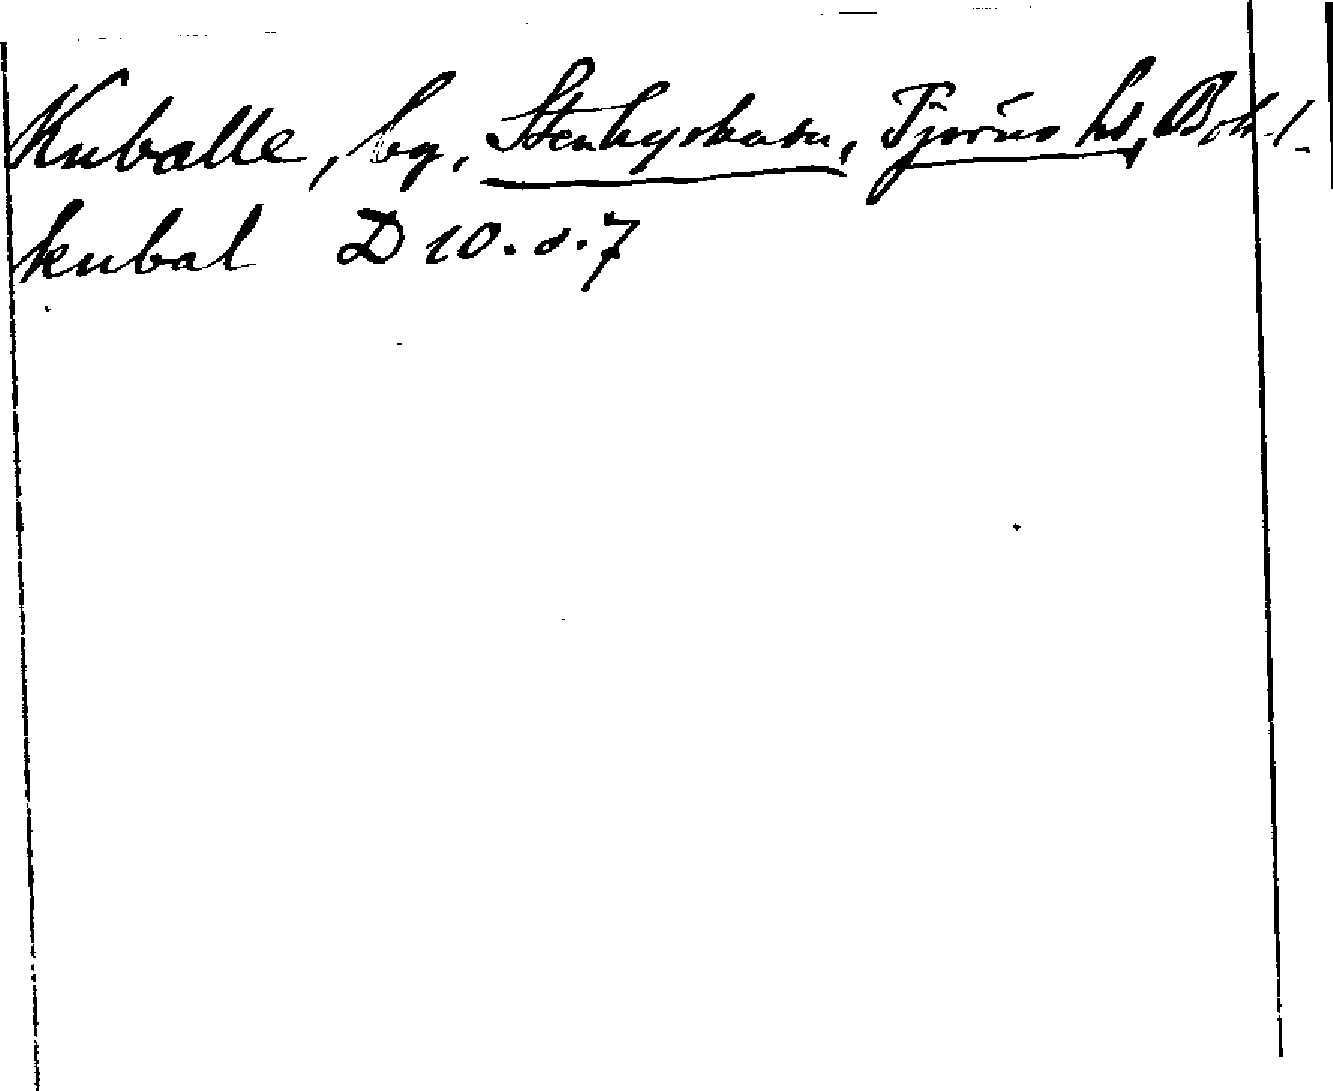 Kuballe, bg, Stenkyrka sn, Tjörns hd, Boh. l.
kubal D 10. s. 7